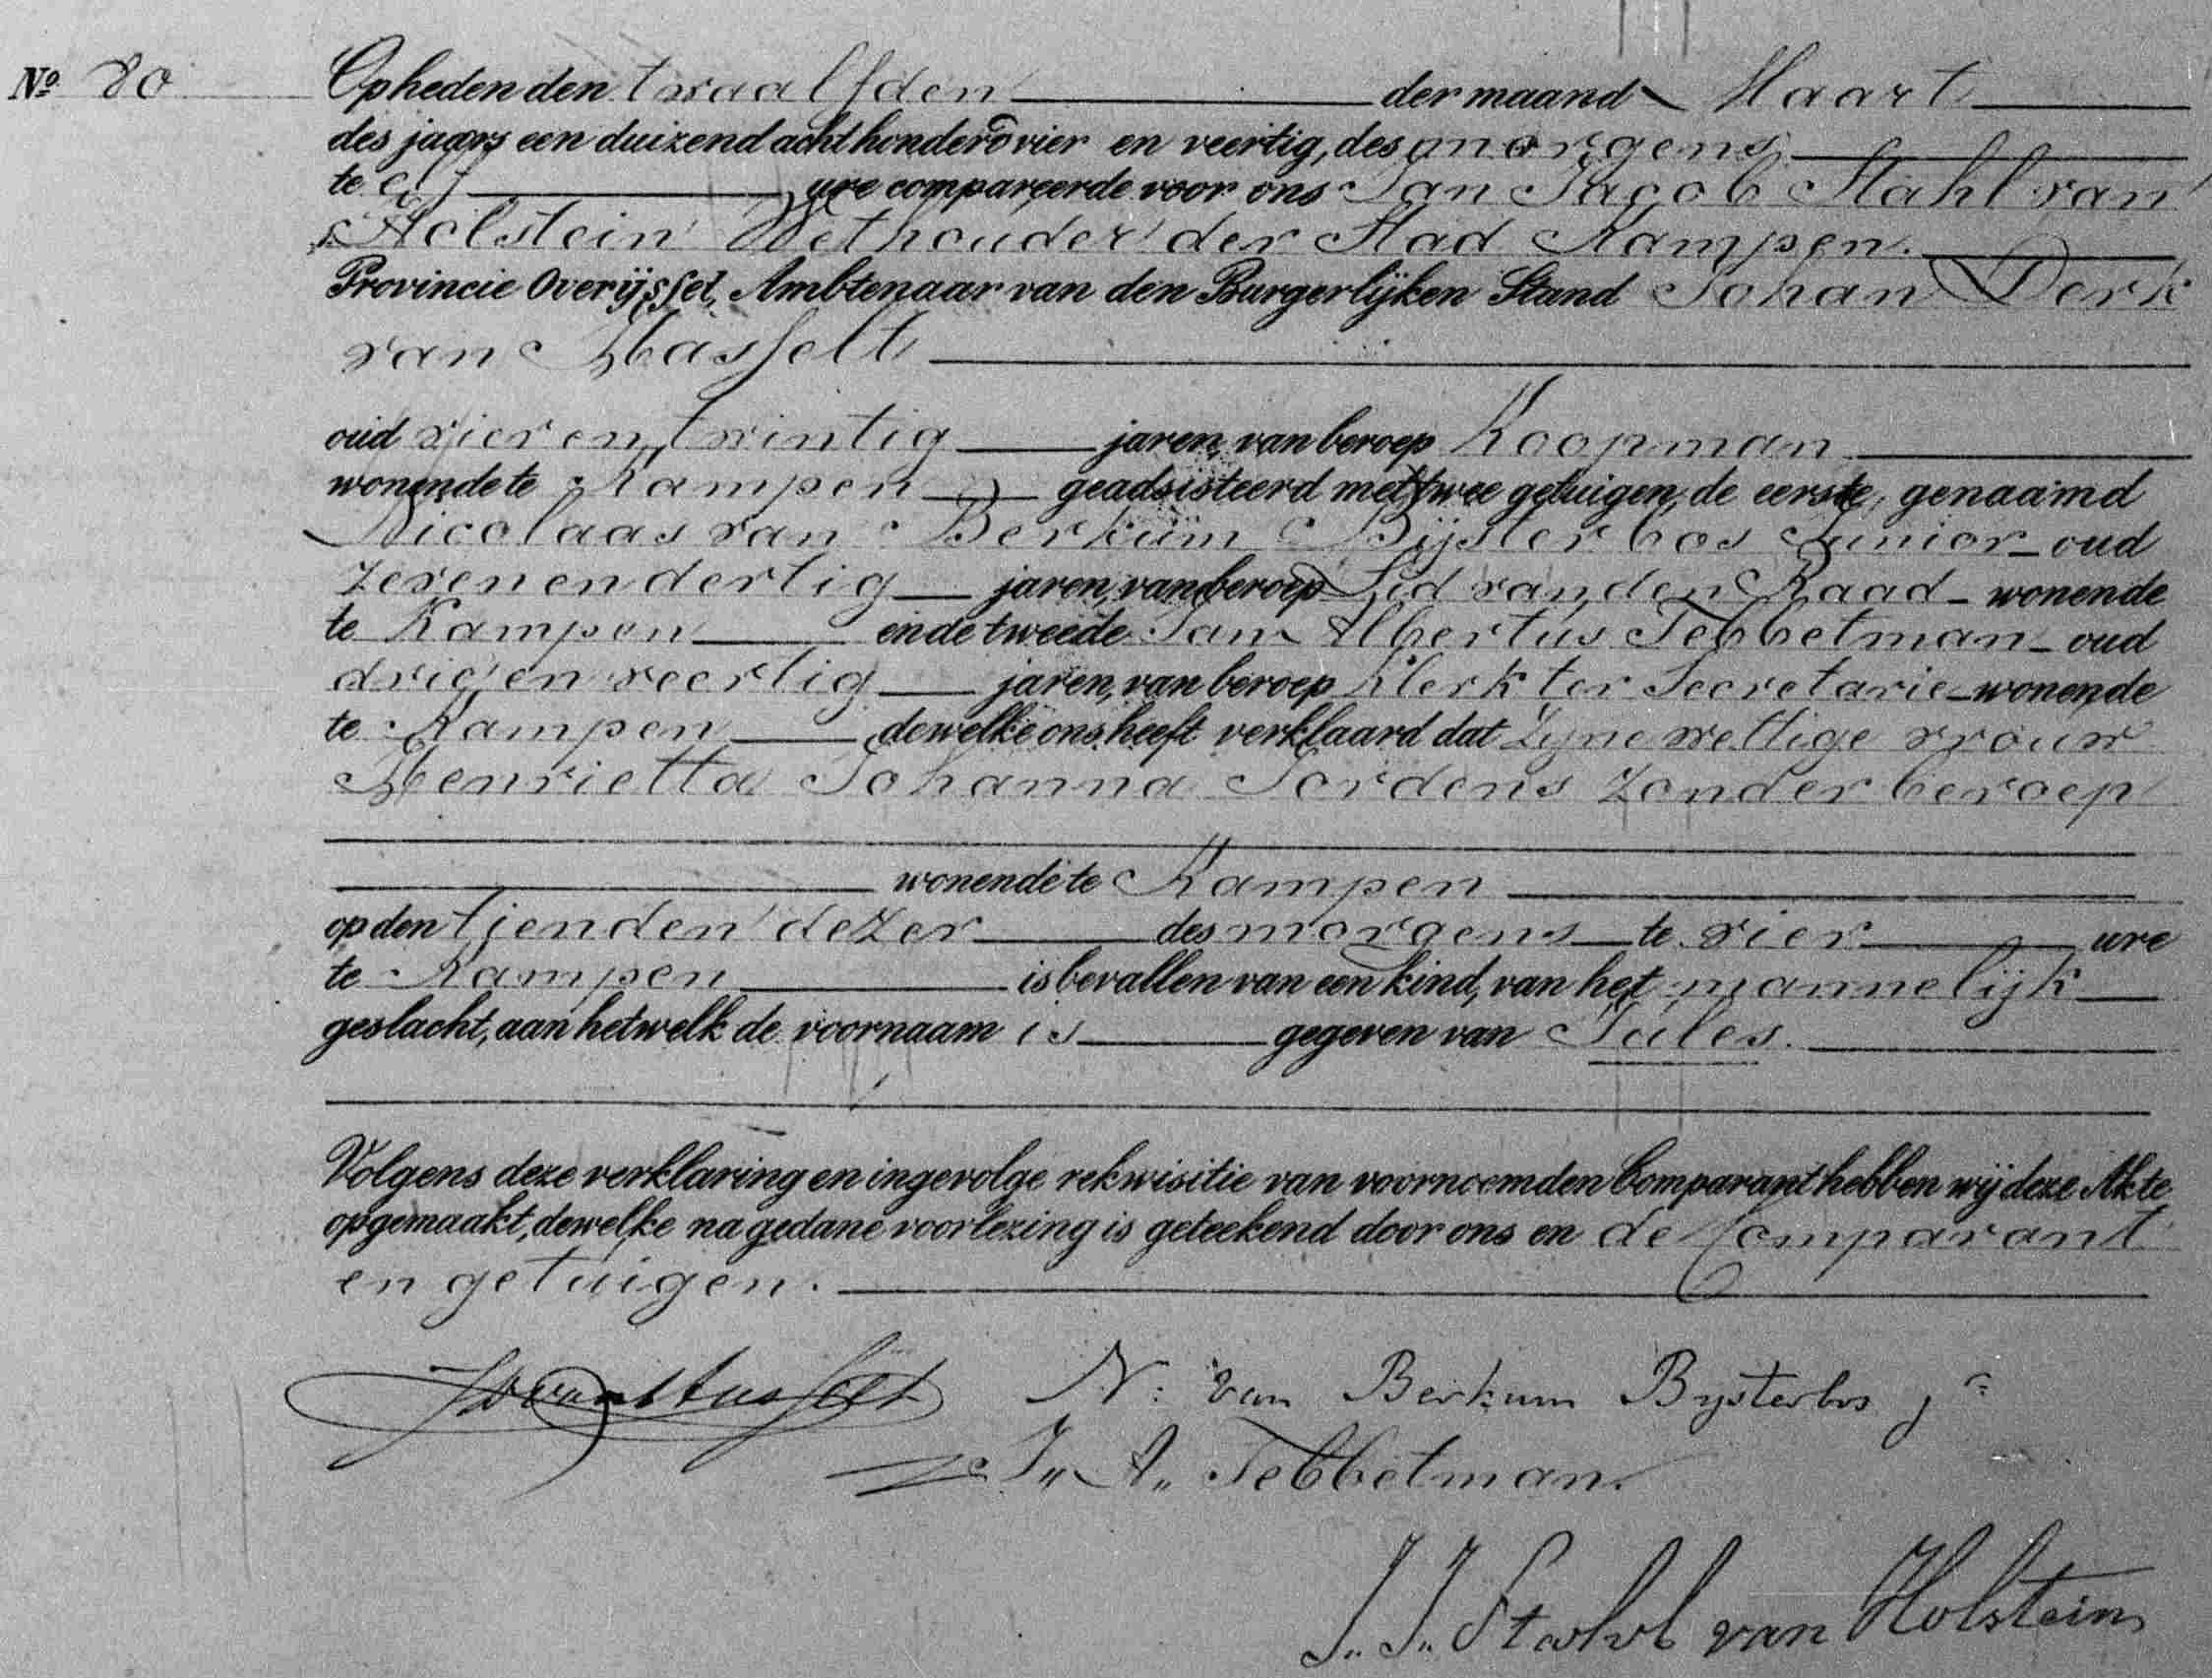 Nº 80
Op heden den twaalfden der maand Maart
des jaars een duizend acht honderd vier en veertig, des morgens
te elf ure compareerde voor ons Jan Jacob Stahl van
Holstein Wethouder der Stad Kampen.
Provincie Overijssel, Ambtenaar van den Burgerlijken Stand Johan Derk
van Hasselt
oud vier en twintig jaren, van beroep Koopman
wonende te Kampen geadsisteerd met twee getuigen, de eerste, genaamd
Nicolaas van Berkum Bijsterbos Junior oud
zeven en dertig jaren, van beroep Lid van den Raad wonende
te Kampen en de tweede Jan Albertus Tebbetman oud
drie en veertig jaren, van beroep Klerk ter Secretarie wonende
te Kampen dewelke ons heeft verklaard dat zyne wettige vrouw
Henrietta Johanna Jordens zonder beroep
wonende te Kampen
op den tienden dezer des morgens te vier ure
te Kampen is bevallen van een kind, van het mannelijk
geslacht, aan hetwelk de voornaam is gegeven van Jules.
Volgens deze verklaring en ingevolge rekwisitie van voornoemden Comparant hebben wij deze Akte
opgemaakt, dewelke na gedane voorlezing is geteekend door ons en de Comparant
en getuigen.
JD van Hasselt N: van Berkum Bysterbos jr
J,, A,, Tebbetman.
J,, J,, Stahl van Holstein